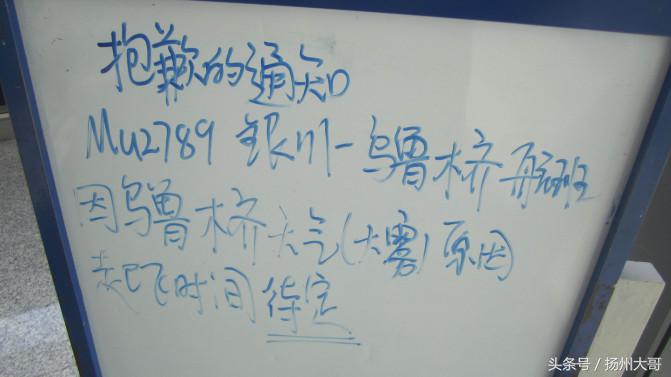 抱歉的通知
MU2789 银川-乌鲁木齐航班
因乌鲁木齐天气(大雾)原因
起飞时间待定
头条号/扬州大哥